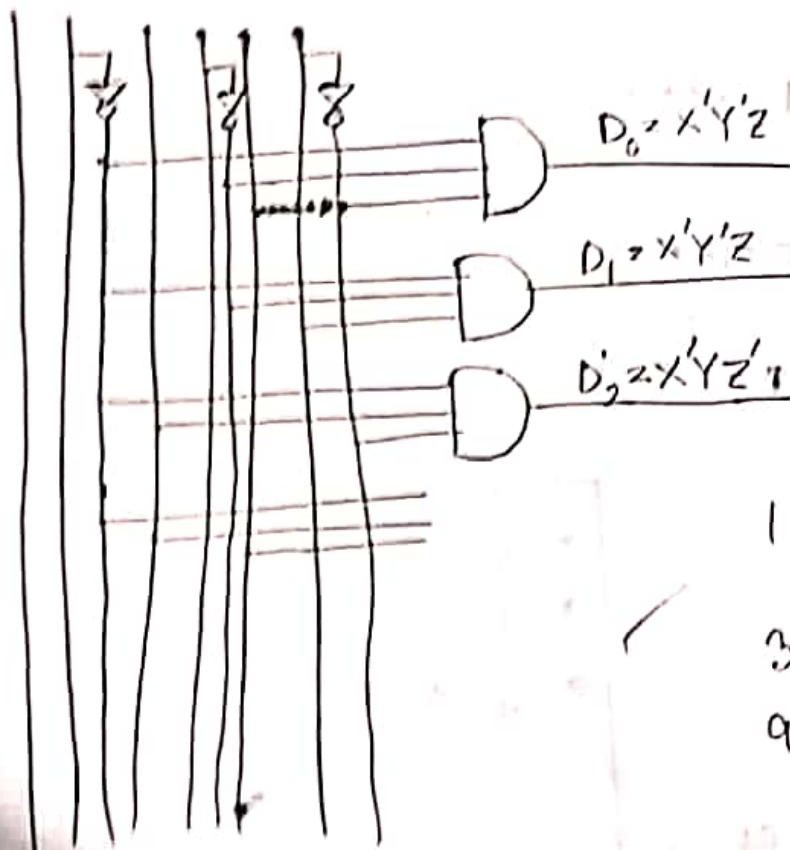 D₀ = X'Y'Z
D₁ = X'Y'Z
D₂ = X'YZ'
1
3
9